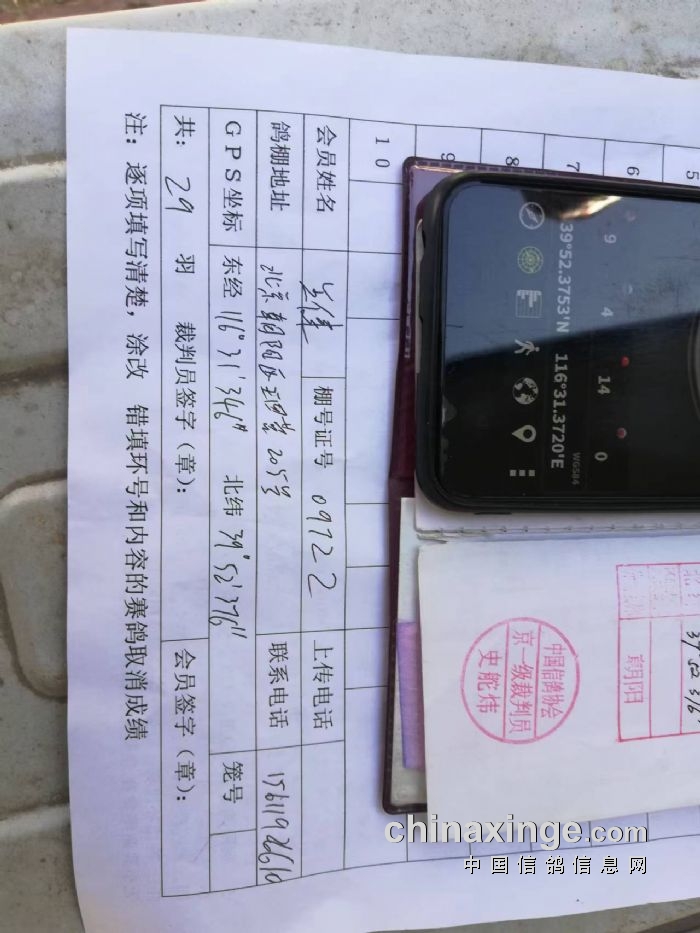 5
6
7
8
9
10
会员姓名 棚号证号 09122 上传电话
鸽棚地址 北京朝阳区 205号 联系电话 15611926610
GPS坐标 东经 116°31'346" 北纬 39°52'376" 笼号
共: 29 羽 裁判员签字(章): 会员签字(章):
注: 逐项填写清楚, 涂改 错填环号和内容的赛鸽取消成绩
9 4 14 0
WGS84
39°52.3753'N 116°31.3720'E
中国信鸽协会
京一级裁判员
史舵炜
39 52 376
chinaxinge.com
中国信鸽信息网